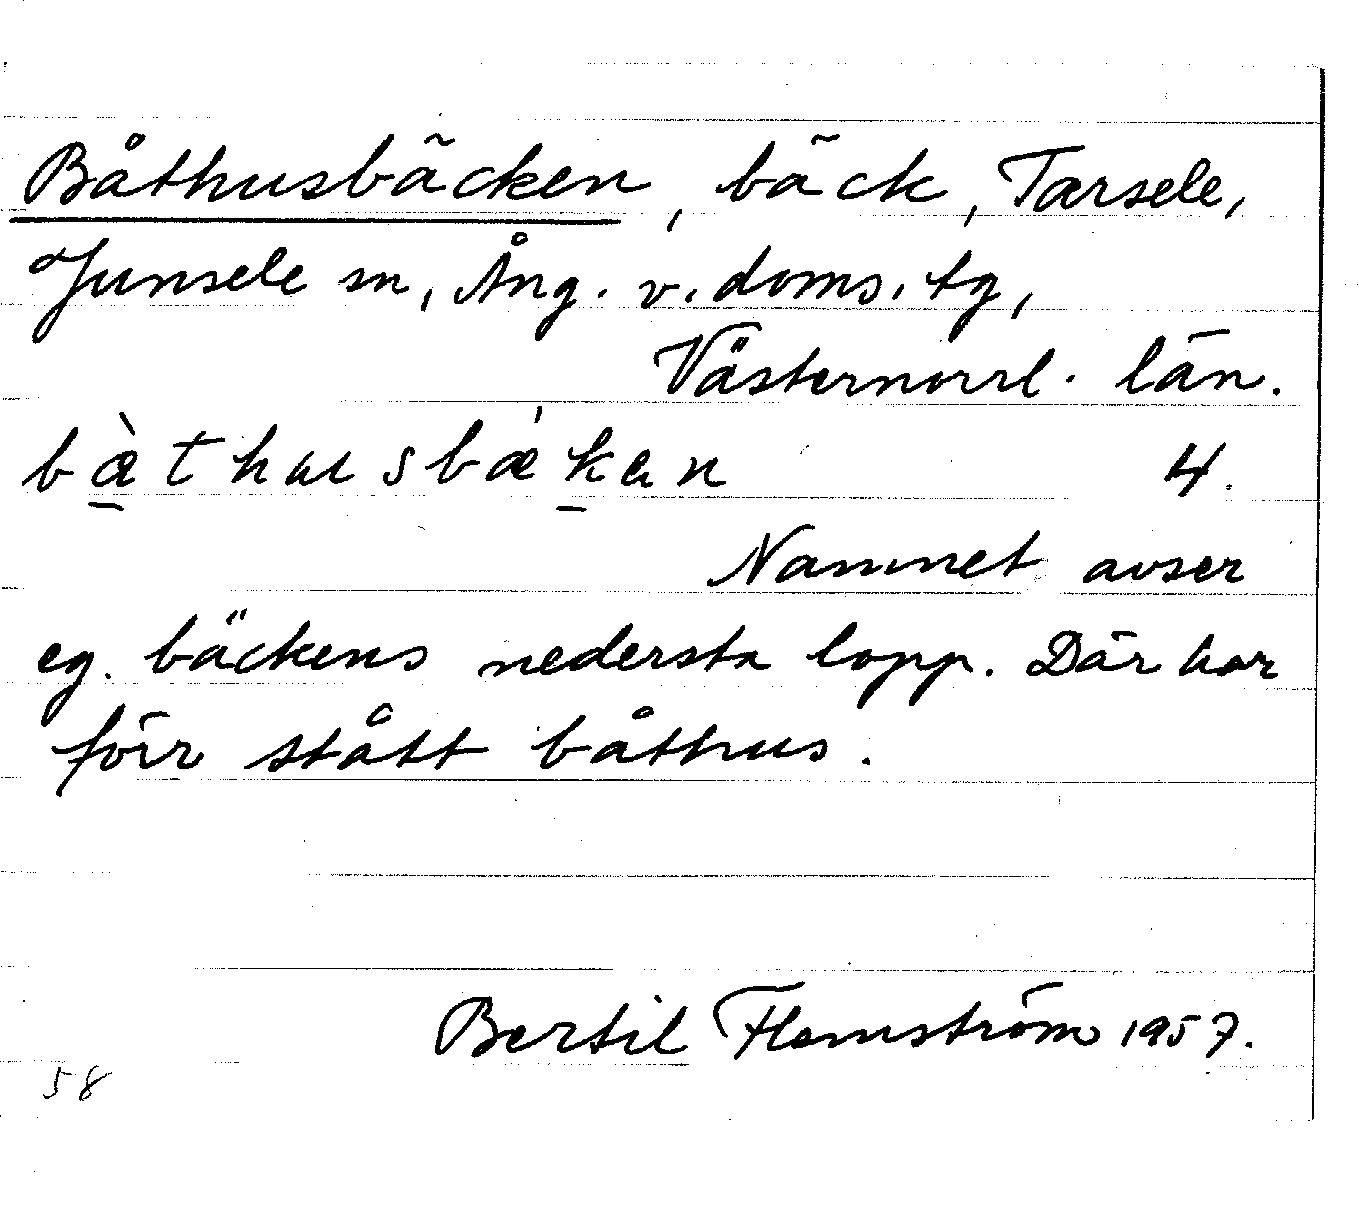 Båthusbäcken, bäck, Tarsele,
Junsele sn, Ång. v. doms. tg,
Västernorrl. län.
bæ̀thusbækan 4.
Namnet avser
eg. bäckens nedersta lopp. Där har
förr stått båthus.
Bertil Flemström 1957.
58